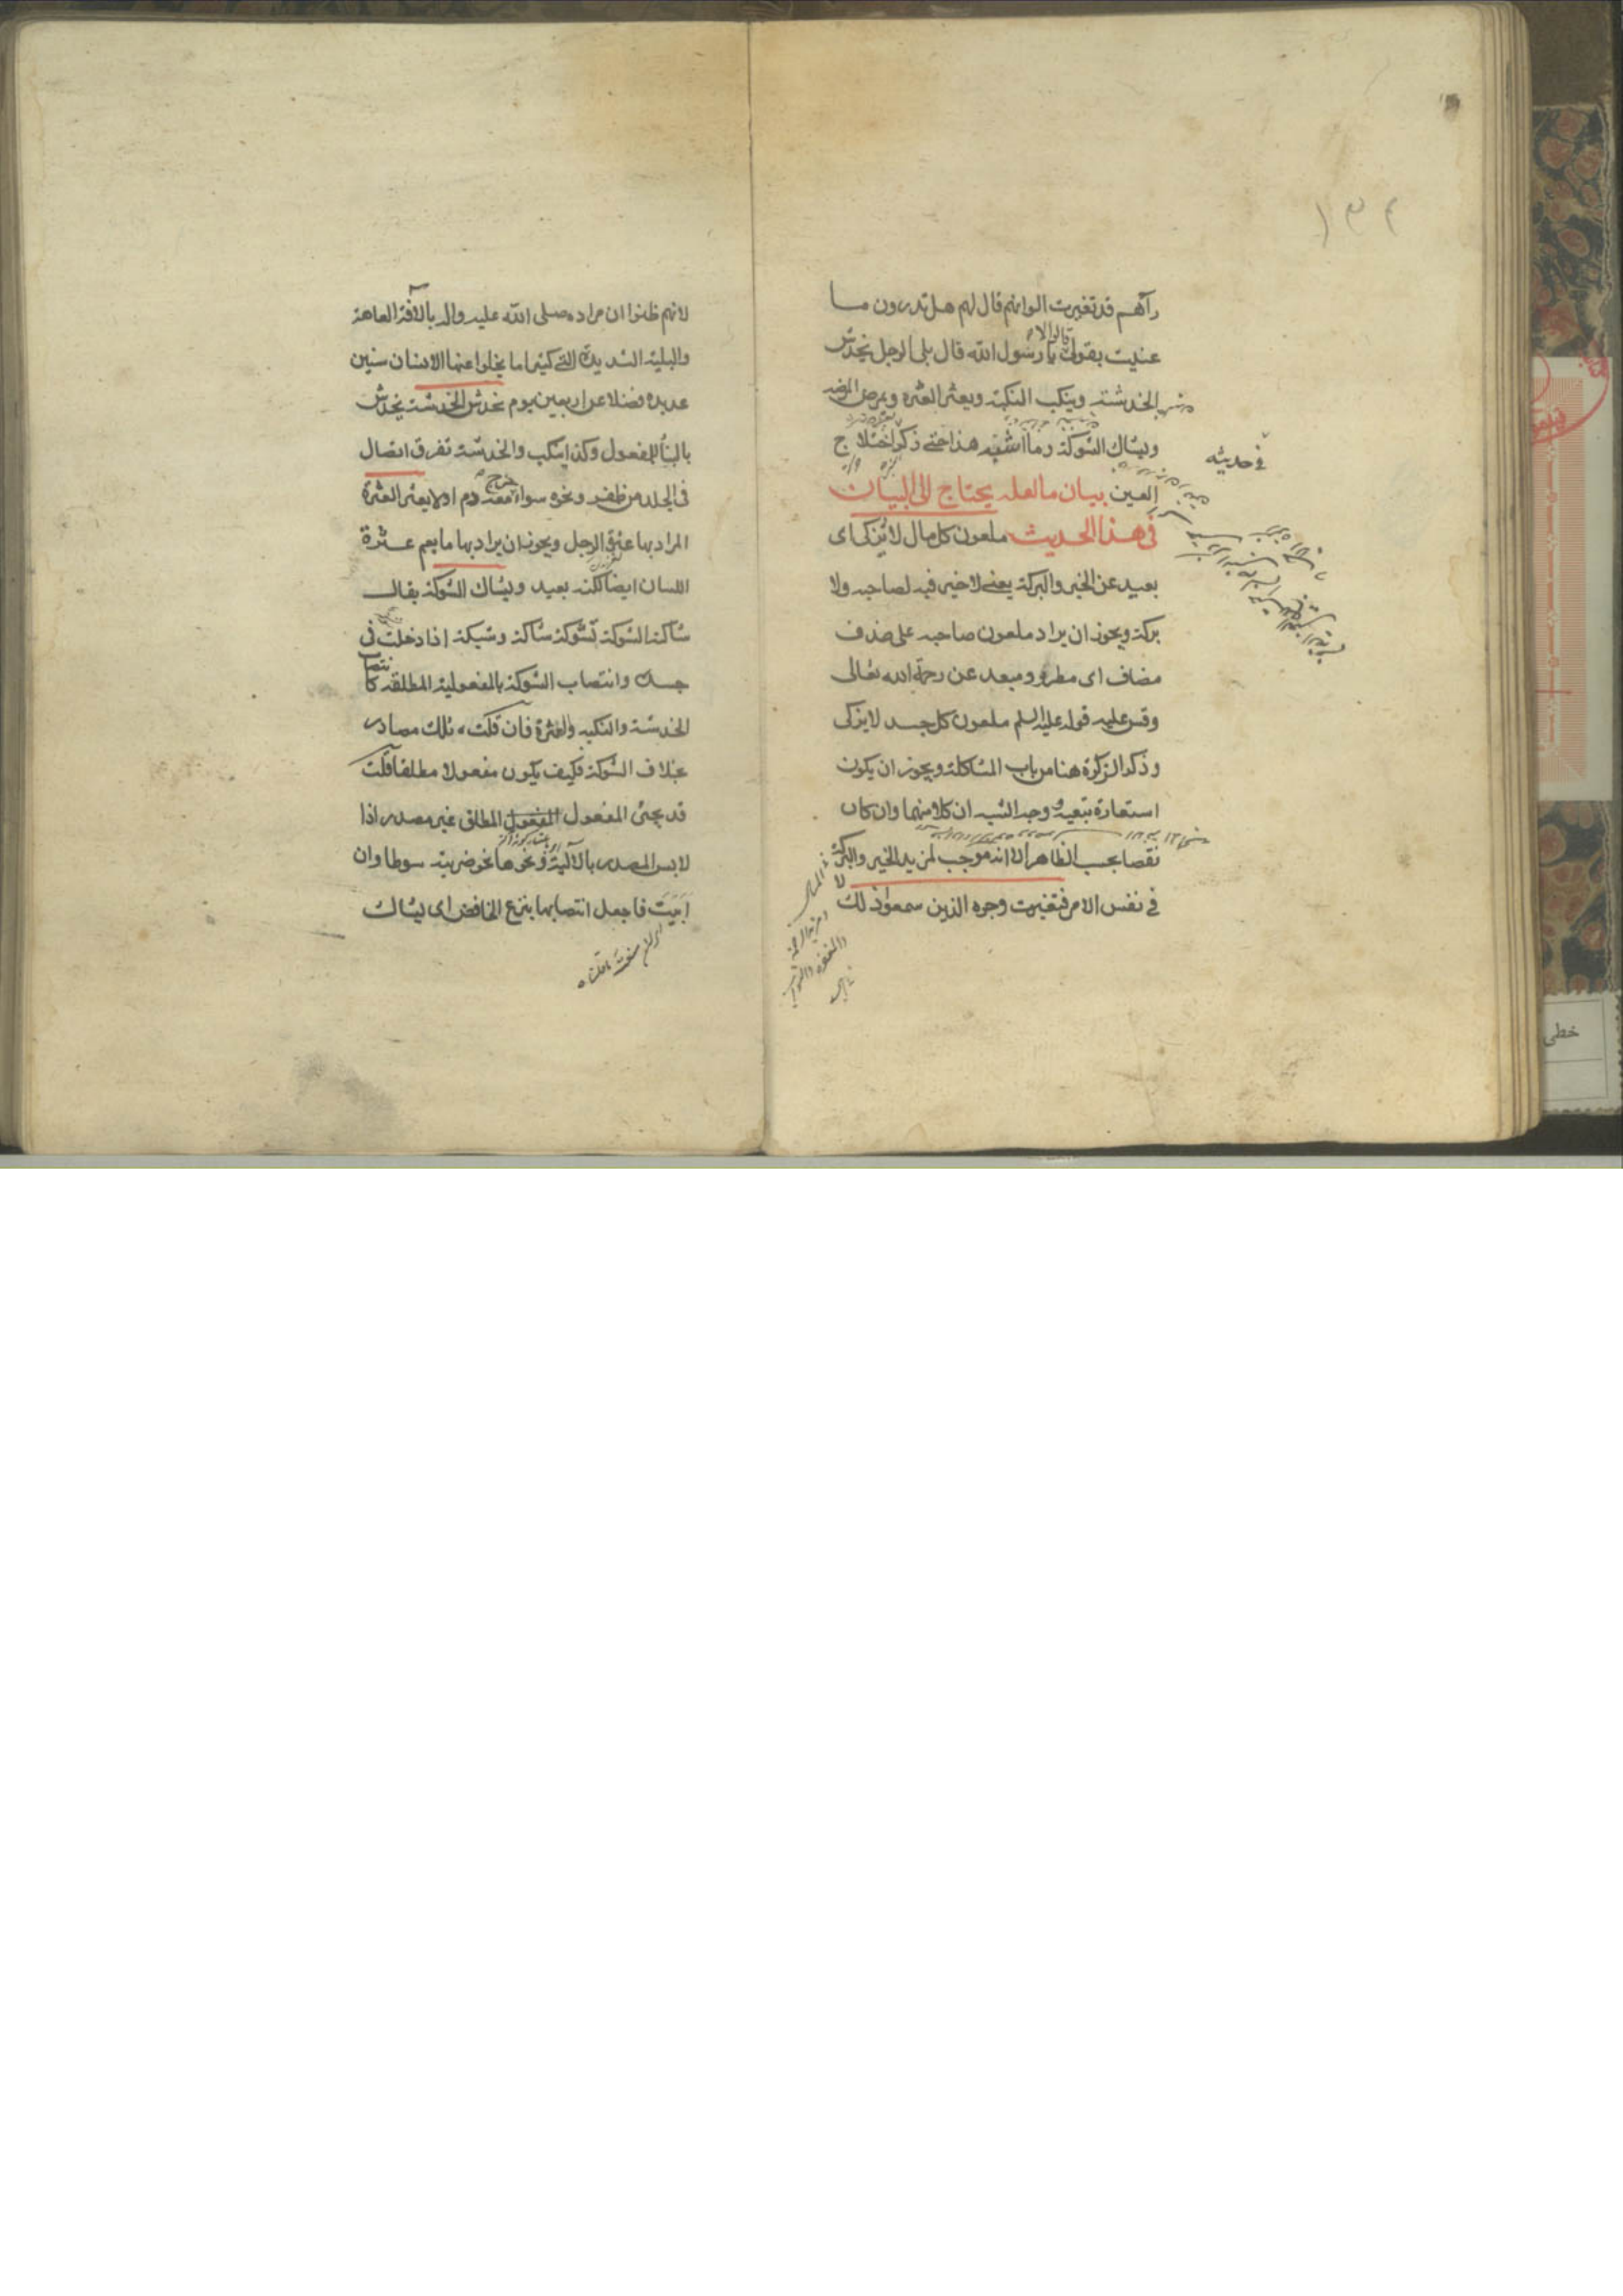 ١٣٢
رآهم قد تغيرت الوانهم قال لهم هل تدرون ما
عنيت بقولى قالوا لا يا رسول الله قال بلى الرجل يخدش
الخدشة وينكب النكبة ويعثر العثرة ويمرض المرضه
ويشاك الشوكة وما اشبه هذا حتى ذكر اختلاج
فى حديثه
العين بيان ما لعله يحتاج الى البيان
فى هذا الحديث ملعون كل مال لا يزكى اى
بعيد عن الخير والبركة يعنى لا خير فيه لصاحبه ولا
بركة ويجوز ان يراد ملعون صاحبه على حذف
مضاف اى مطرود ومبعد عن رحمة الله تعالى
وقس عليه قوله عليه السلم ملعون كل جسد لا يزكى
وذكر الزكوة هنا من باب المشاكلة ويجوز ان يكون
استعارة تبعية ووجه الشبه ان كلا منهما وان كان
نقصا بحسب الظاهر الا انه موجب لمزيد الخير والبركة
فى نفس الامر فتغيرت وجوه الذين سمعوا ذلك
لانهم ظنوا ان مراده صلى الله عليه واله بالآفة العاهة
والبلية الشديدة التى كثيرا ما يخلوا عنها الانسان سنين
عديده فضلا عن اربعين يوم يخدش الخدشة يخدش
بالبناء للمفعول وكذا ينكب والخدشة تفرق اتصال
فى الجلد من ظفر ونحوه سواء خرج معه دم او لا يعثر العثرة
المراد بها عثرة الرجل ويجوز ان يراد بها ما يعم عثرة
اللسان ايضا لكنه بعيد ويشاك الشوكة يقال
شاكته الشوكة تشوكه شاكة وشيكة اذا دخلت فى
جسده وانتصاب الشوكة بالمفعولية المطلقه كانتصاب
الخدشة والنكبه والعثرة فان قلت تلك مصادر
بخلاف الشوكة فكيف يكون مفعولا مطلقا قلت
قد يجئ المفعول المفعول المطلق غير مصدر اذا
لابس المصدر بالآلية ونحوها نحو ضربته سوطا وان
ابيت فاجعل انتصابها بنزع الخافض اى يشاك
خطى